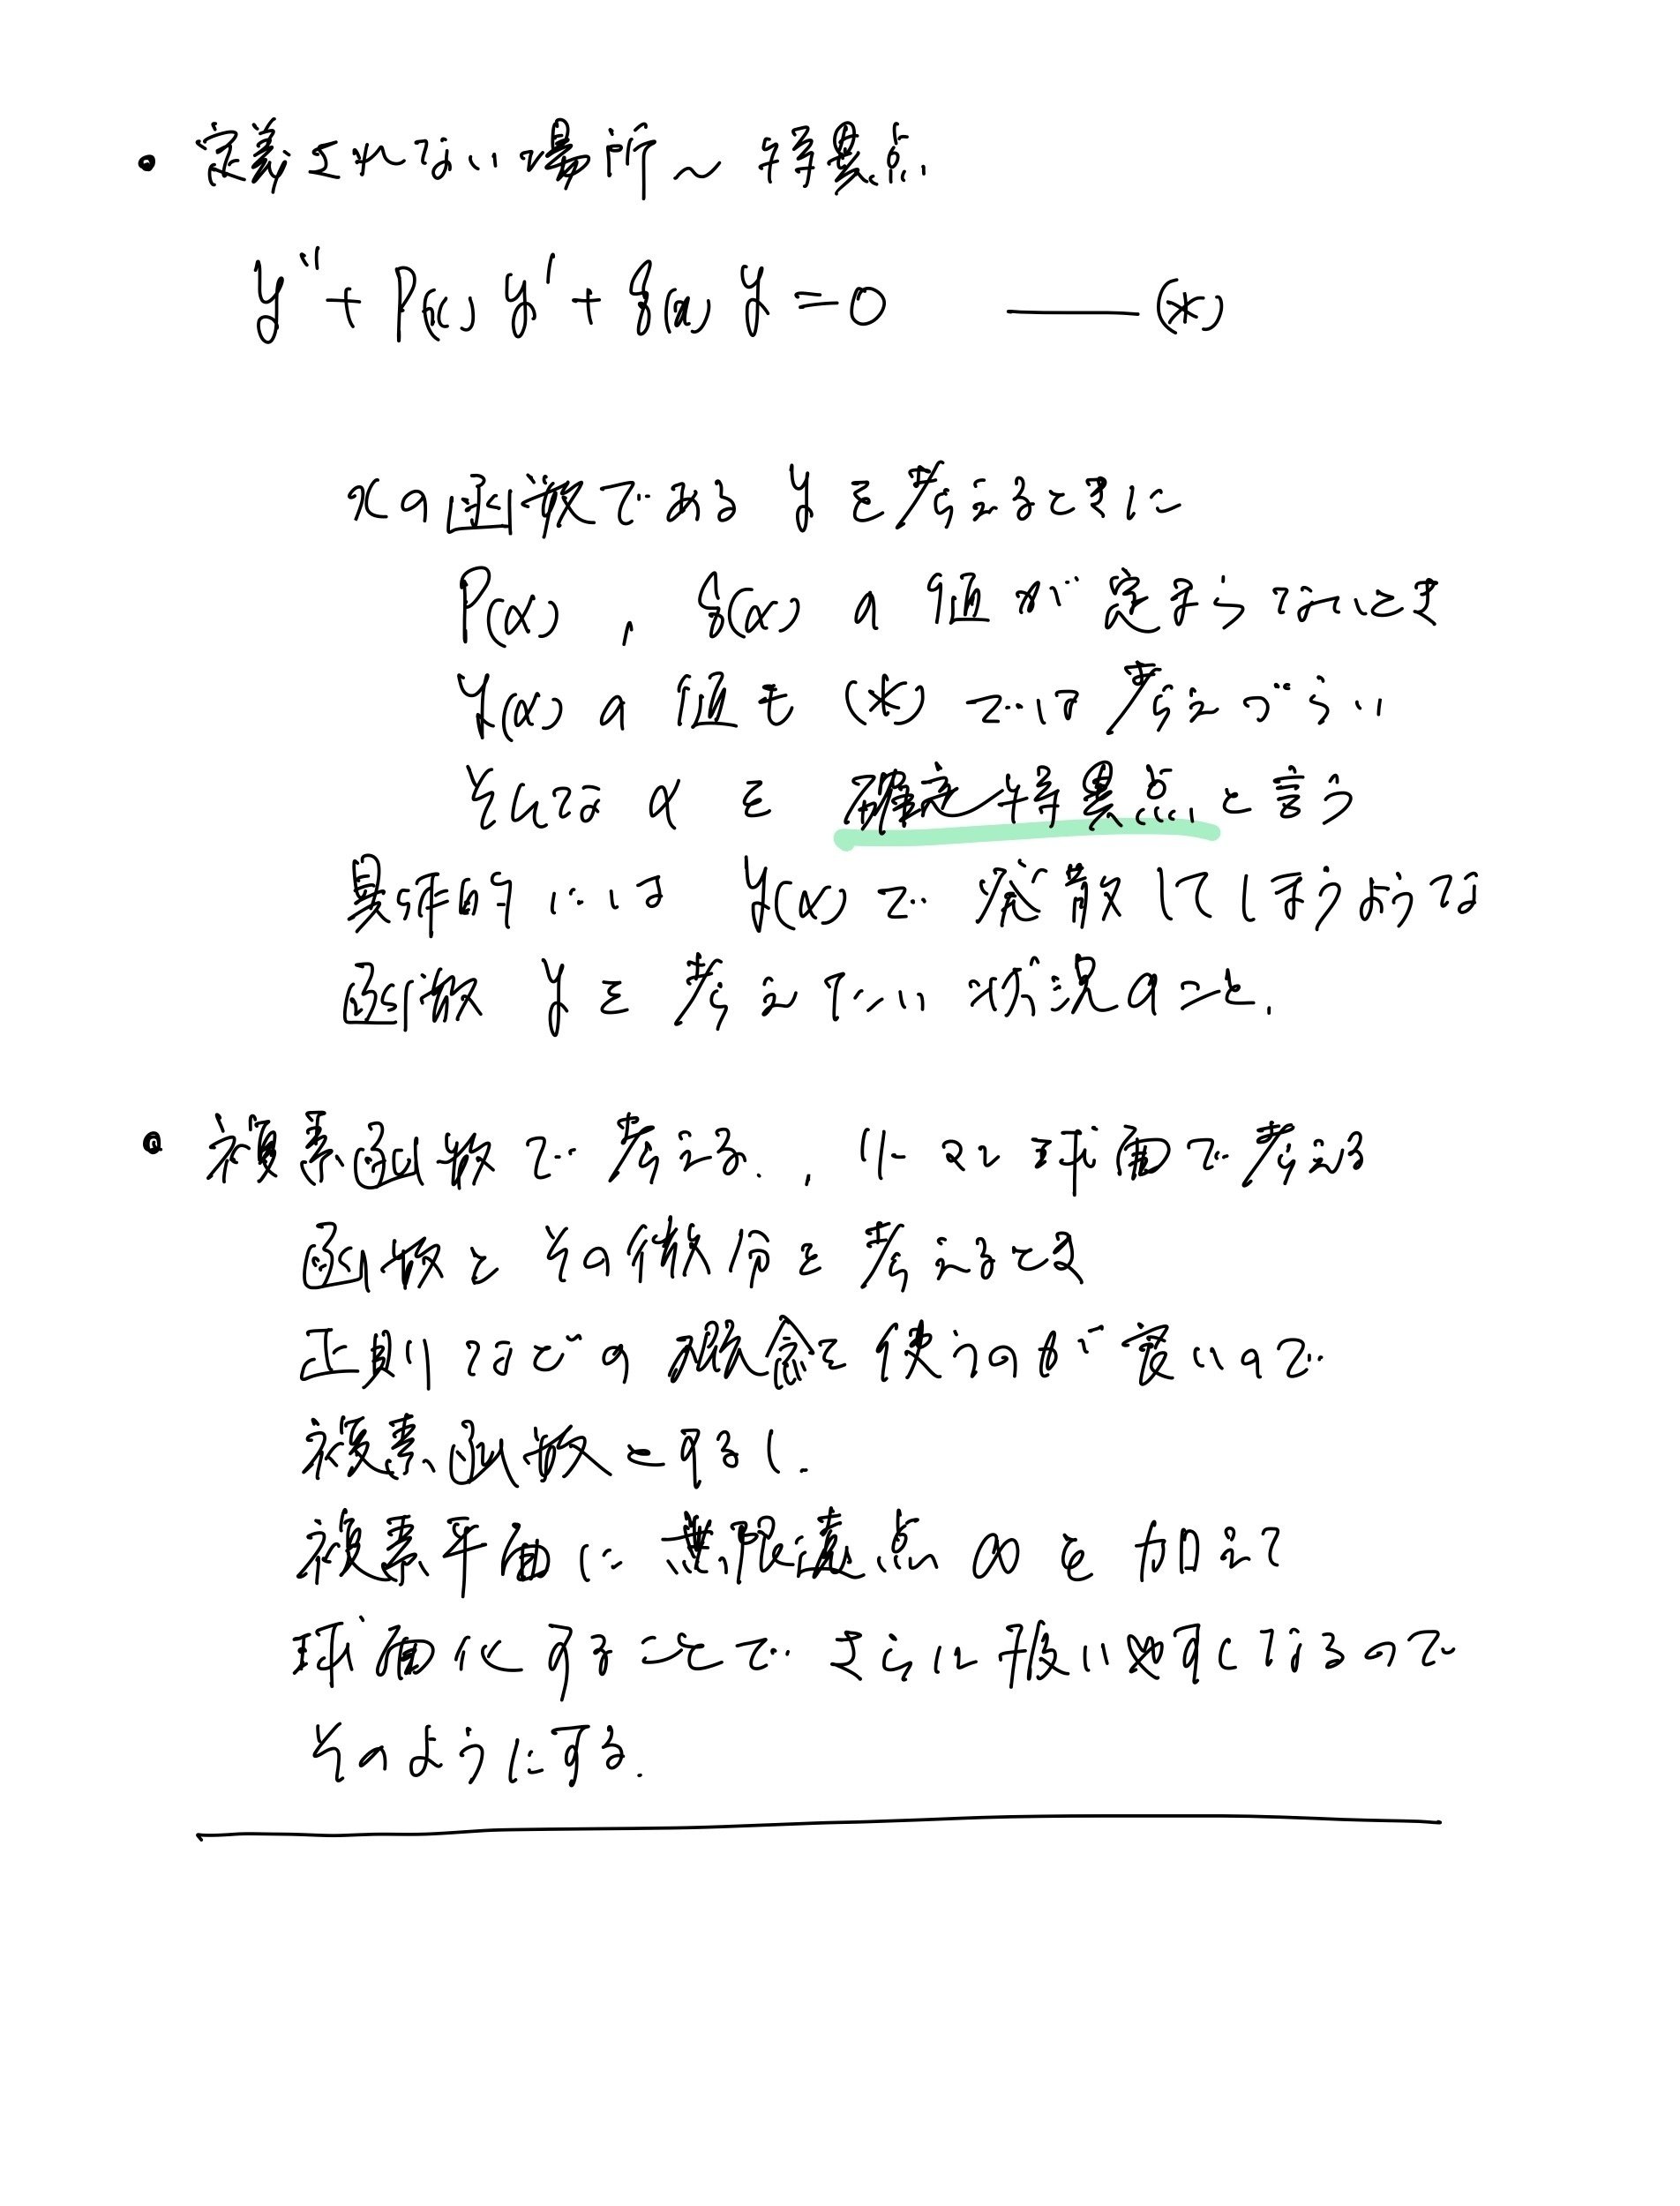 ・定義されない場所〜特異点.
y'' + P(x) y' + q(x) y = 0 ——— (*)
xの函数である y を考えるときに
P(α) , q(α) の値が定まらないとき
y(α) の値も (*) では考えづらい
そんな α を 確定特異点と言う
具体的には y(α) で発散してしまうような
函数 y を考えたい状況のこと.
・複素函数で考える., リーマン球面で考える
函数とその微分を考えるとき
正則などの概念を使うのが良いので
複素函数とするし.
複素平面に無限遠点 ∞ を加えて
球面化することでさらに扱いやすくなるので
そのようにする.